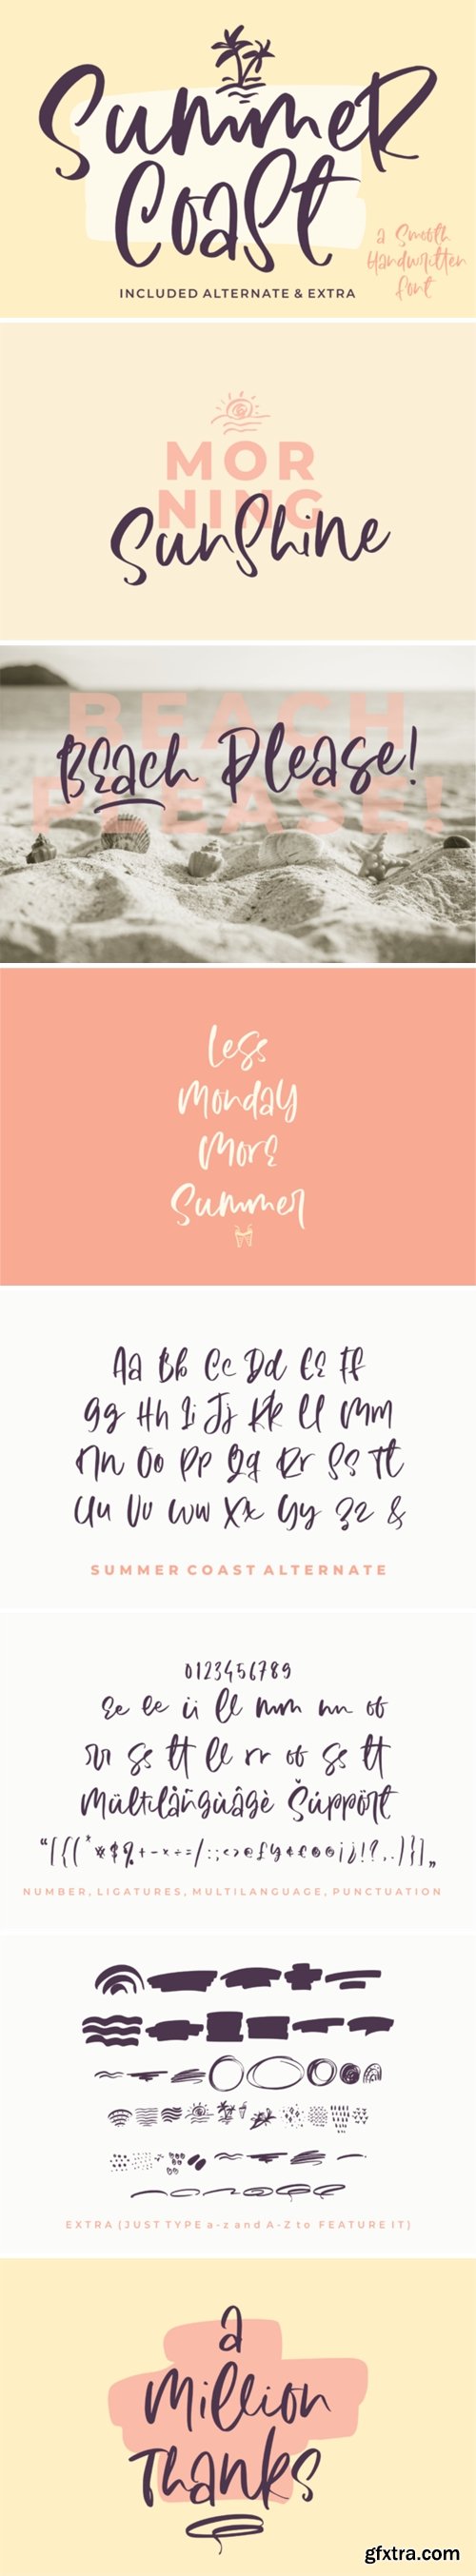 Summer
Coast
a Smooth
Handwritten
font
INCLUDED ALTERNATE & EXTRA
MOR
NING
Sunshine
BEACH
PLEASE!
Beach Please!
Less
Monday
More
Summer
Aa Bb Cc Dd Ee Ff
Gg Hh Ii Jj Kk Ll Mm
Nn Oo Pp Qq Rr Ss Tt
Uu Vv Ww Xx Yy Zz &
SUMMER COAST ALTERNATE
0123456789
Multilanguage Support
NUMBER, LIGATURES, MULTILANGUAGE, PUNCTUATION
EXTRA (JUST TYPE a-z and A-Z to FEATURE IT)
a
Million
Thanks
gfxtra.com